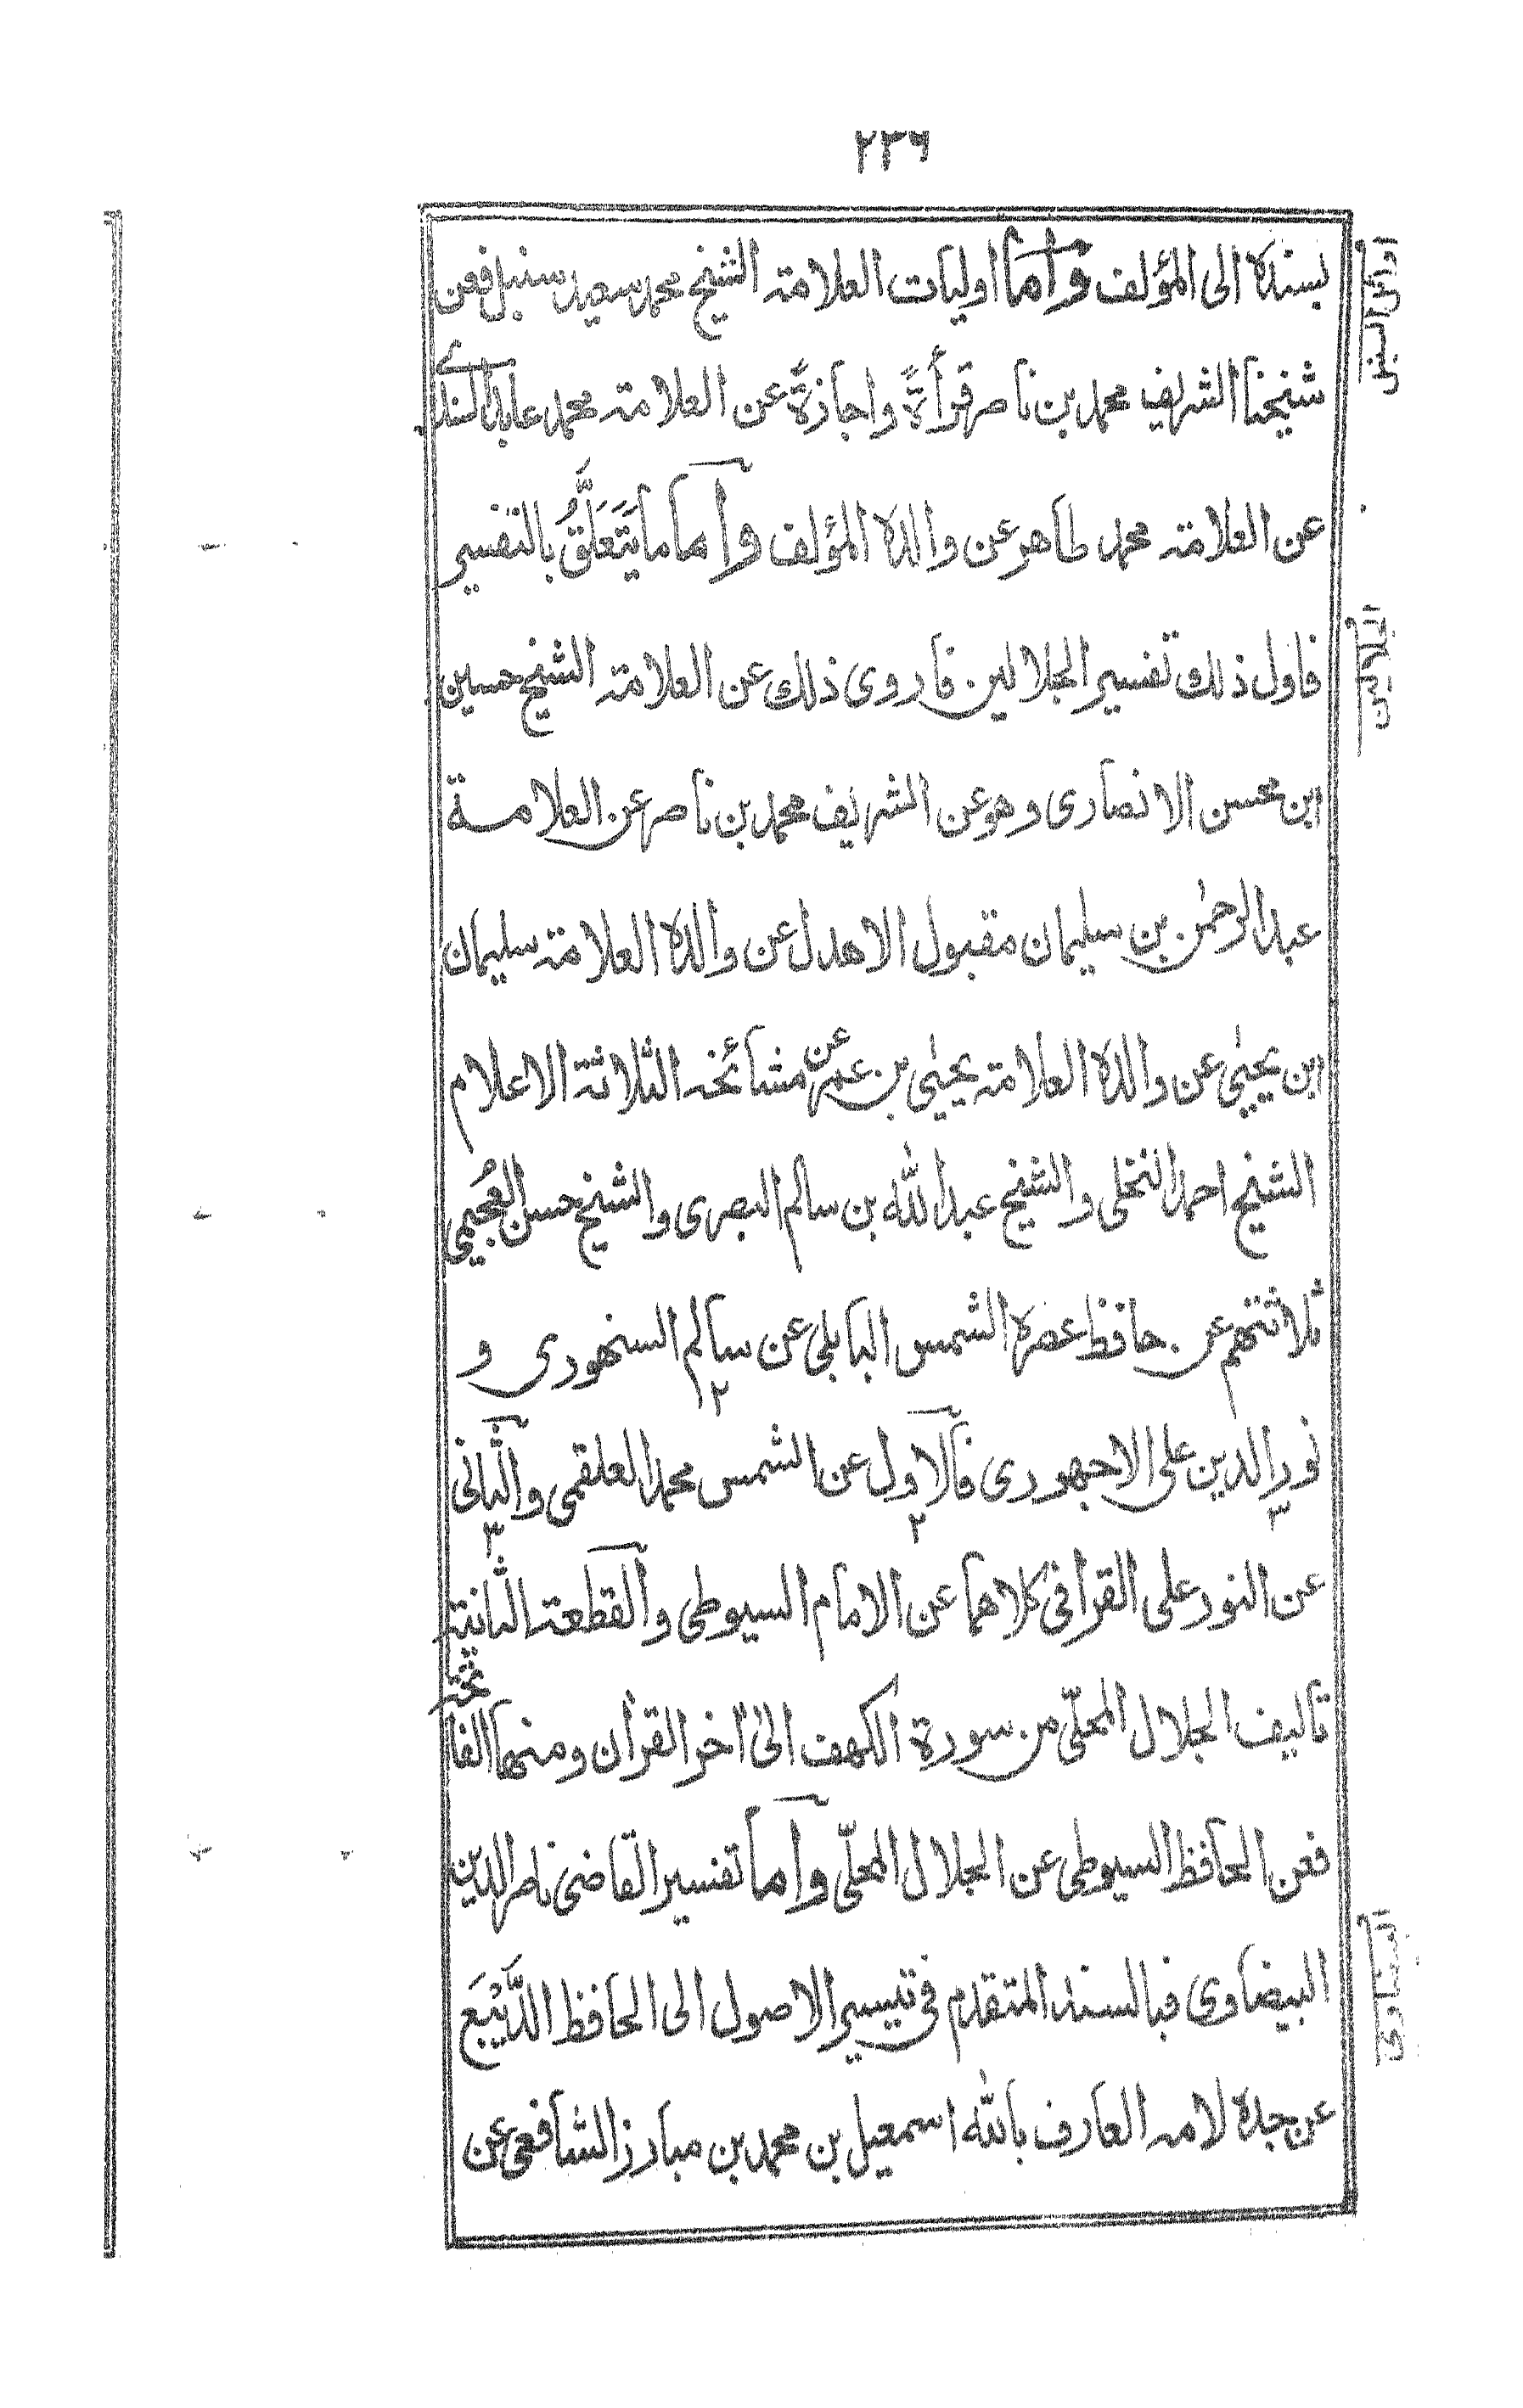 ٢٣٦
بسنده الى المؤلف وأما اوليات العلامة الشيخ محمد سعيد سنبل فعن
شيخنا الشريف محمد بن ناصر قرأةً واجازةً عن العلامة محمد عابد السندى
عن العلامة محمد طاهر عن والده المؤلف وآما ما يَتَعَلَّقُ بالتفسير
فاول ذلك تفسير الجلالين فاروى ذلك عن العلامة الشيخ حسين
ابن محسن الانصارى وهو عن الشريف محمد بن ناصر عن العلامة
عبد الرحمٰن بن سليمان مقبول الاهدل عن والده العلامة سليمان
ابن يحيٰى عن والده العلامة يحيٰى بن عمر عن مشائخه الثلاثة الاعلام
الشيخ احمد النخلى والشيخ عبد الله بن سالم البصرى والشيخ حسن العُجيمي
ثلاثتهم عن حافظ عصره الشمس البابلى عن سالم السنهورى و
١٢
نور الدين على الاجهورى فآلاول عن الشمس محمد العلقمى والثّانى
٣ ٢ ٣
عن النور على القرافى كلاهما عن الامام السيوطى وآلقطعة الثانية
تأليف الجلال المحلّى من سورة الكهف الىٰ آخر القرآن ومنها الفاتحة
فعن الحافظ السيوطى عن الجلال المحلّى وآما تفسير القاضى ناصر الدين
البيضاوى فبالسند المتقدم فى تيسير الاصول الى الحافظ الدَّيْبَع
عن جده لامه العارف بالله اسمعيل بن محمد بن مبارز الشافعى عن
اوائل السنبل
الجلالين
البيضاوى